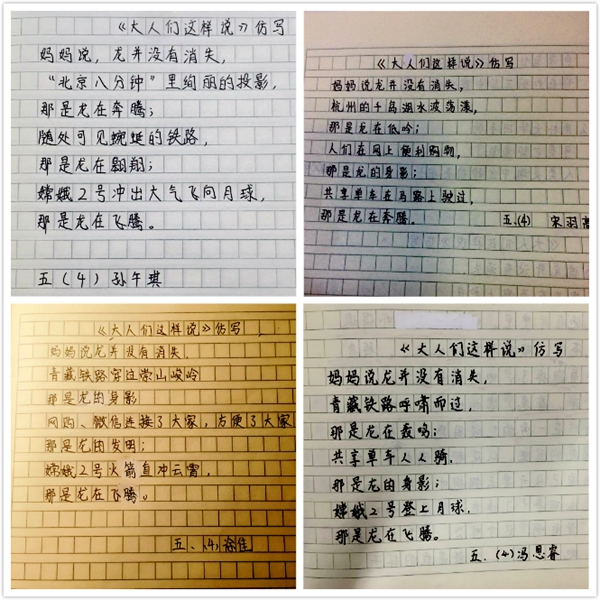 《大人们这样说》仿写
妈妈说，龙并没有消失，
“北京八分钟”里绚丽的投影，
那是龙在奔腾；
随处可见蜿蜒的铁路，
那是龙在翱翔；
嫦娥2号冲出大气飞向月球，
那是龙在飞腾。
五（4）孙午琪
《大人们这样说》仿写
妈妈说龙并没有消失，
杭州的千岛湖水波荡漾，
那是龙在低吟；
人们在网上便利购物，
那是龙的身影；
共享单车在马路上驶过，
那是龙在奔腾。
五、(4) 宋羽
《大人们这样说》仿写
妈妈说龙并没有消失，
青藏铁路穿过崇山峻岭
那是龙的身影
网购、微信连接了大家，方便了大家
那是龙的发明；
嫦娥2号火箭直冲云霄，
那是龙在飞腾。
五、(4) 佳
《大人们这样说》仿写
妈妈说龙并没有消失，
青藏铁路呼啸而过，
那是龙在轰鸣；
共享单车人人骑，
那是龙的身影；
嫦娥2号登上月球，
那是龙在飞腾。
五、(4) 冯思睿